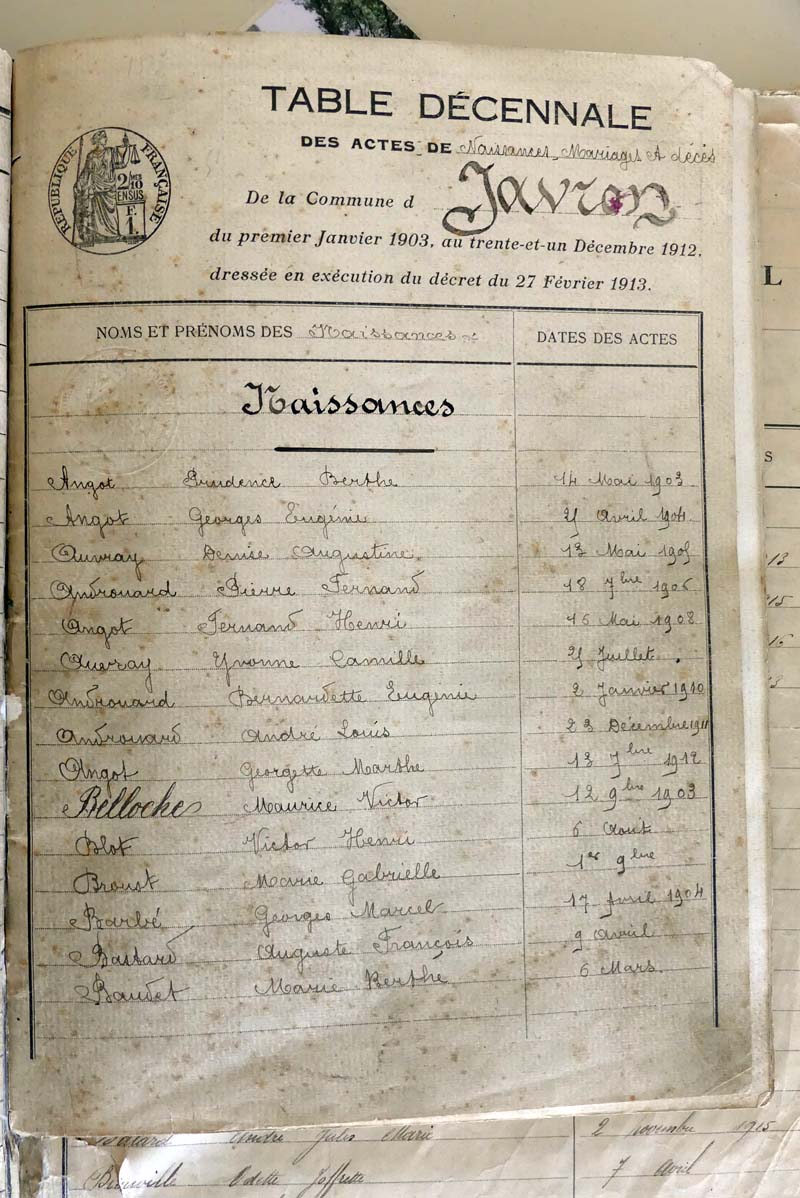 TABLE DÉCENNALE
RÉPUBLIQUE FRANÇAISE
2/10
EN SUS
F.
1.
DES ACTES DE Naissances, Mariages et décès
De la Commune d Javron
du premier Janvier 1903, au trente-et-un Décembre 1912,
dressée en exécution du décret du 27 Février 1913.
L
NOMS ET PRÉNOMS DES Naissances DATES DES ACTES
Naissances
S
Angot Prudence Berthe 14 Mai 1903
Angot Georges Eugénie 21 Avril 1904
Auvray Denise Augustine 13 Mai 1905
Androuard Pierre Fernand 18 7bre 1906
Angot Fernand Henri 16 Mai 1908
Auvray Yvonne Camille 21 Juillet
Androuard Bernardette Eugénie 2 Janvier 1910
Androuard André Louis 23 Décembre 1911
Angot Georgette Marthe 13 7bre 1912
Belloche Maurice Victor 12 9bre 1903
Blot Victor Henri 6 Aout
Broust Marie Gabrielle 1er 9bre
Barbé Georges Marcel 17 Avril 1904
Bastard Auguste François 9 Avril
Baudet Marie Berthe 6 Mars
André Jules Marie 2 novembre 1915
Odette Joffrette 7 Avril